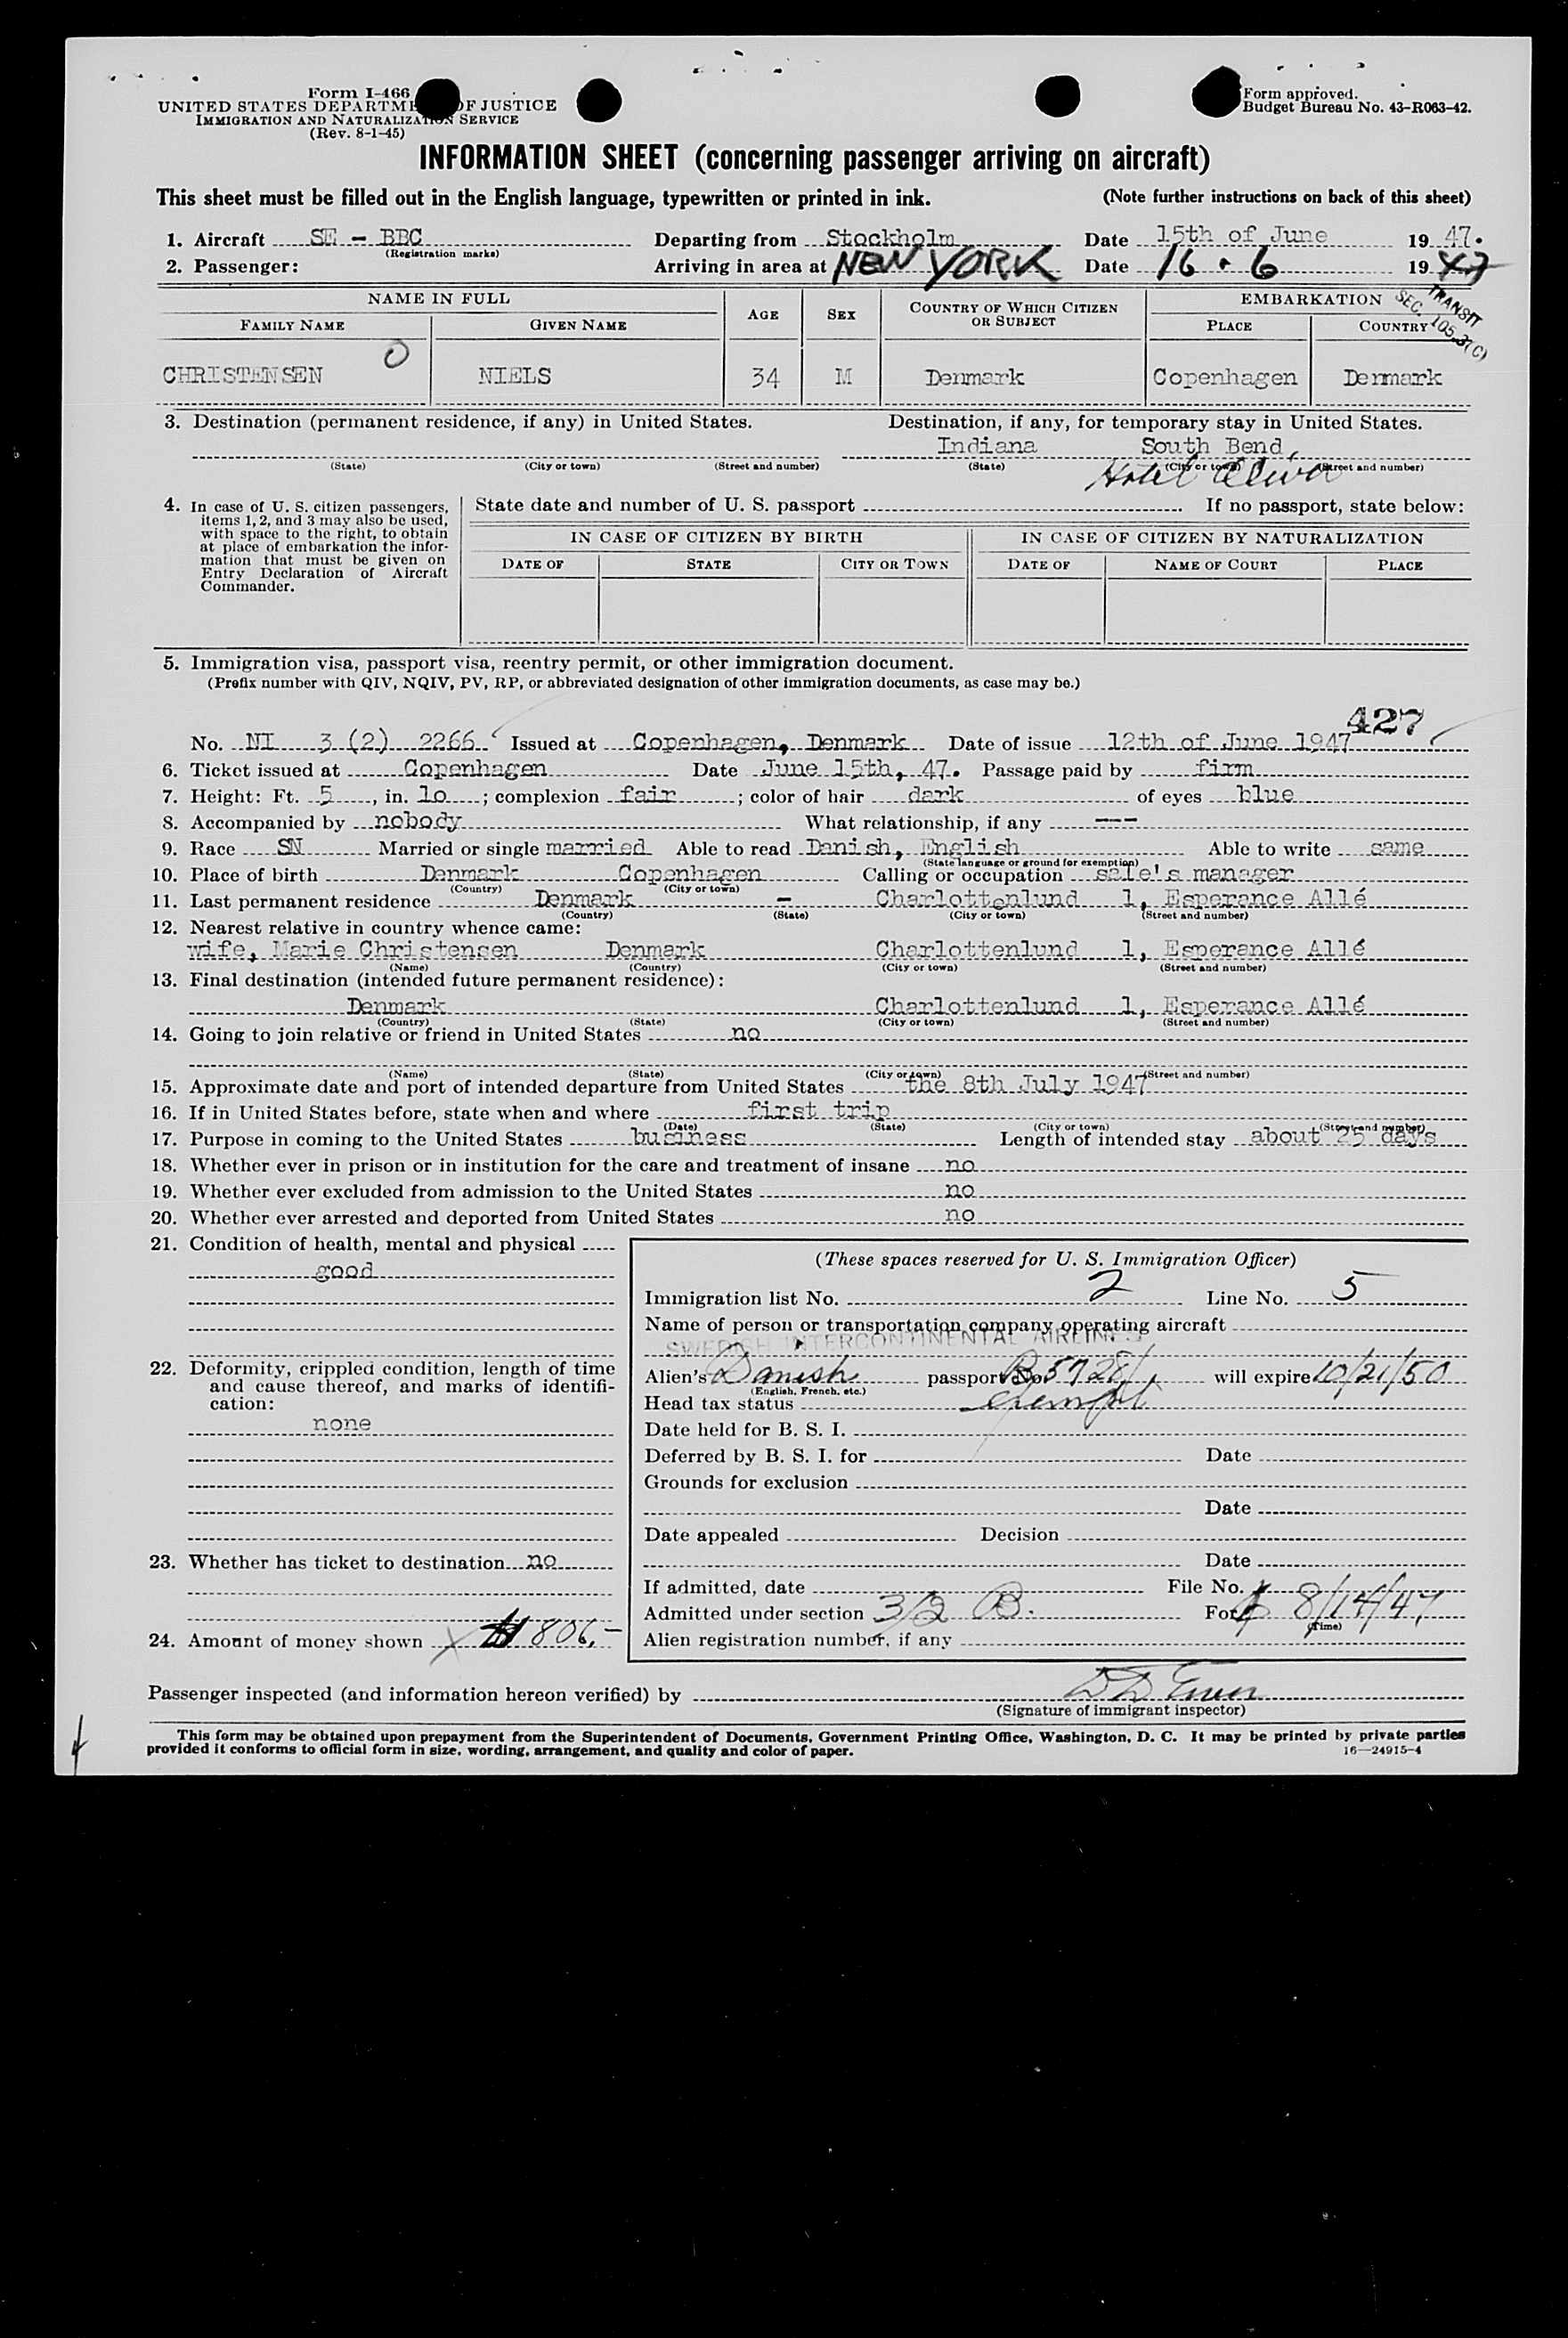 Form I-466
UNITED STATES DEPARTME OF JUSTICE
IMMIGRATION AND NATURALIZATION SERVICE
(Rev. 8-1-45)
Form approved.
Budget Bureau No. 43-R063-42.
INFORMATION SHEET (concerning passenger arriving on aircraft)
This sheet must be filled out in the English language, typewritten or printed in ink. (Note further instructions on back of this sheet)
1. Aircraft SE - BBC Departing from Stockholm Date 15th of June 19 47.
(Registration marks)
2. Passenger: Arriving in area at NEW YORK Date 16 . 6 19 47
TRANSIT
SEC. 105.3(C)
NAME IN FULL AGE SEX COUNTRY OF WHICH CITIZEN OR SUBJECT EMBARKATION
FAMILY NAME GIVEN NAME PLACE COUNTRY
O
CHRISTENSEN NIELS 34 M Denmark Copenhagen Denmark
3. Destination (permanent residence, if any) in United States. Destination, if any, for temporary stay in United States.
Indiana South Bend,
(State) (City or town) (Street and number) (State) (City or town) (Street and number)
Hotel
4. In case of U. S. citizen passengers, items 1, 2, and 3 may also be used, with space to the right, to obtain at place of embarkation the information that must be given on Entry Declaration of Aircraft Commander.
State date and number of U. S. passport If no passport, state below:
IN CASE OF CITIZEN BY BIRTH IN CASE OF CITIZEN BY NATURALIZATION
DATE OF STATE CITY OR TOWN DATE OF NAME OF COURT PLACE
5. Immigration visa, passport visa, reentry permit, or other immigration document.
(Prefix number with QIV, NQIV, PV, RP, or abbreviated designation of other immigration documents, as case may be.)
427
No. NI 3 (2) 2266 Issued at Copenhagen, Denmark Date of issue 12th of June 1947
6. Ticket issued at Copenhagen Date June 15th, 47. Passage paid by firm
7. Height: Ft. 5, in. lo; complexion fair; color of hair dark of eyes blue
8. Accompanied by nobody What relationship, if any ---
9. Race SN Married or single married Able to read Danish, English Able to write same
(State language or ground for exemption)
10. Place of birth Denmark Copenhagen Calling or occupation sale's manager
(Country) (City or town)
11. Last permanent residence Denmark - Charlottenlund 1, Esperance Allé
(Country) (State) (City or town) (Street and number)
12. Nearest relative in country whence came:
wife, Marie Christensen Denmark Charlottenlund 1, Esperance Allé
(Name) (Country) (City or town) (Street and number)
13. Final destination (intended future permanent residence):
Denmark Charlottenlund 1, Esperance Allé
(Country) (State) (City or town) (Street and number)
14. Going to join relative or friend in United States no
(Name) (State) (City or town) (Street and number)
15. Approximate date and port of intended departure from United States the 8th July 1947
16. If in United States before, state when and where first trip
(Date) (State) (City or town) (Street and number)
17. Purpose in coming to the United States business Length of intended stay about 25 days
18. Whether ever in prison or in institution for the care and treatment of insane no
19. Whether ever excluded from admission to the United States no
20. Whether ever arrested and deported from United States no
21. Condition of health, mental and physical
good
(These spaces reserved for U. S. Immigration Officer)
Immigration list No. 2 Line No. 5
Name of person or transportation company operating aircraft
SWEDISH INTERCONTINENTAL AIRLINES
22. Deformity, crippled condition, length of time and cause thereof, and marks of identification:
none
Alien's Danish passport No. B 5728/ will expire 10/21/50
(English, French, etc.)
Head tax status exempt
Date held for B. S. I.
Deferred by B. S. I. for Date
Grounds for exclusion
Date
Date appealed Decision
23. Whether has ticket to destination no
Date
If admitted, date File No.
Admitted under section 3/2 B. For 8/14/47
(Time)
24. Amount of money shown X $ 806,-
Alien registration number, if any
Passenger inspected (and information hereon verified) by
(Signature of immigrant inspector)
This form may be obtained upon prepayment from the Superintendent of Documents, Government Printing Office, Washington, D. C. It may be printed by private parties
provided it conforms to official form in size, wording, arrangement, and quality and color of paper. 16—24915-4